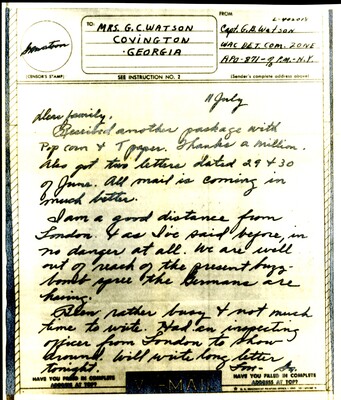 TO:
MRS. G.C. WATSON
COVINGTON
GEORGIA
FROM
Capt. G.B. Watson
WAC DET. COM. ZONE
APO-871- P.M.-N.Y.
(CENSOR'S STAMP)
SEE INSTRUCTION NO. 2
(Sender's complete address above)
11 July
Dear family,
Received another package with
Pop corn & T paper. Thanks a million.
Also got two letters dated 29 & 30
of June. All mail is coming in
much better.
I am a good distance from
London & as I've said before, in
no danger at all. We are well
out of reach of the present buzz
bomb spree the Germans are
having.
Been rather busy & not much
time to write. Had an inspecting
officer from London to show
around. Will write long letter
tonight.
HAVE YOU FILLED IN COMPLETE
ADDRESS AT TOP?
V-MAIL
HAVE YOU FILLED IN COMPLETE
ADDRESS AT TOP?